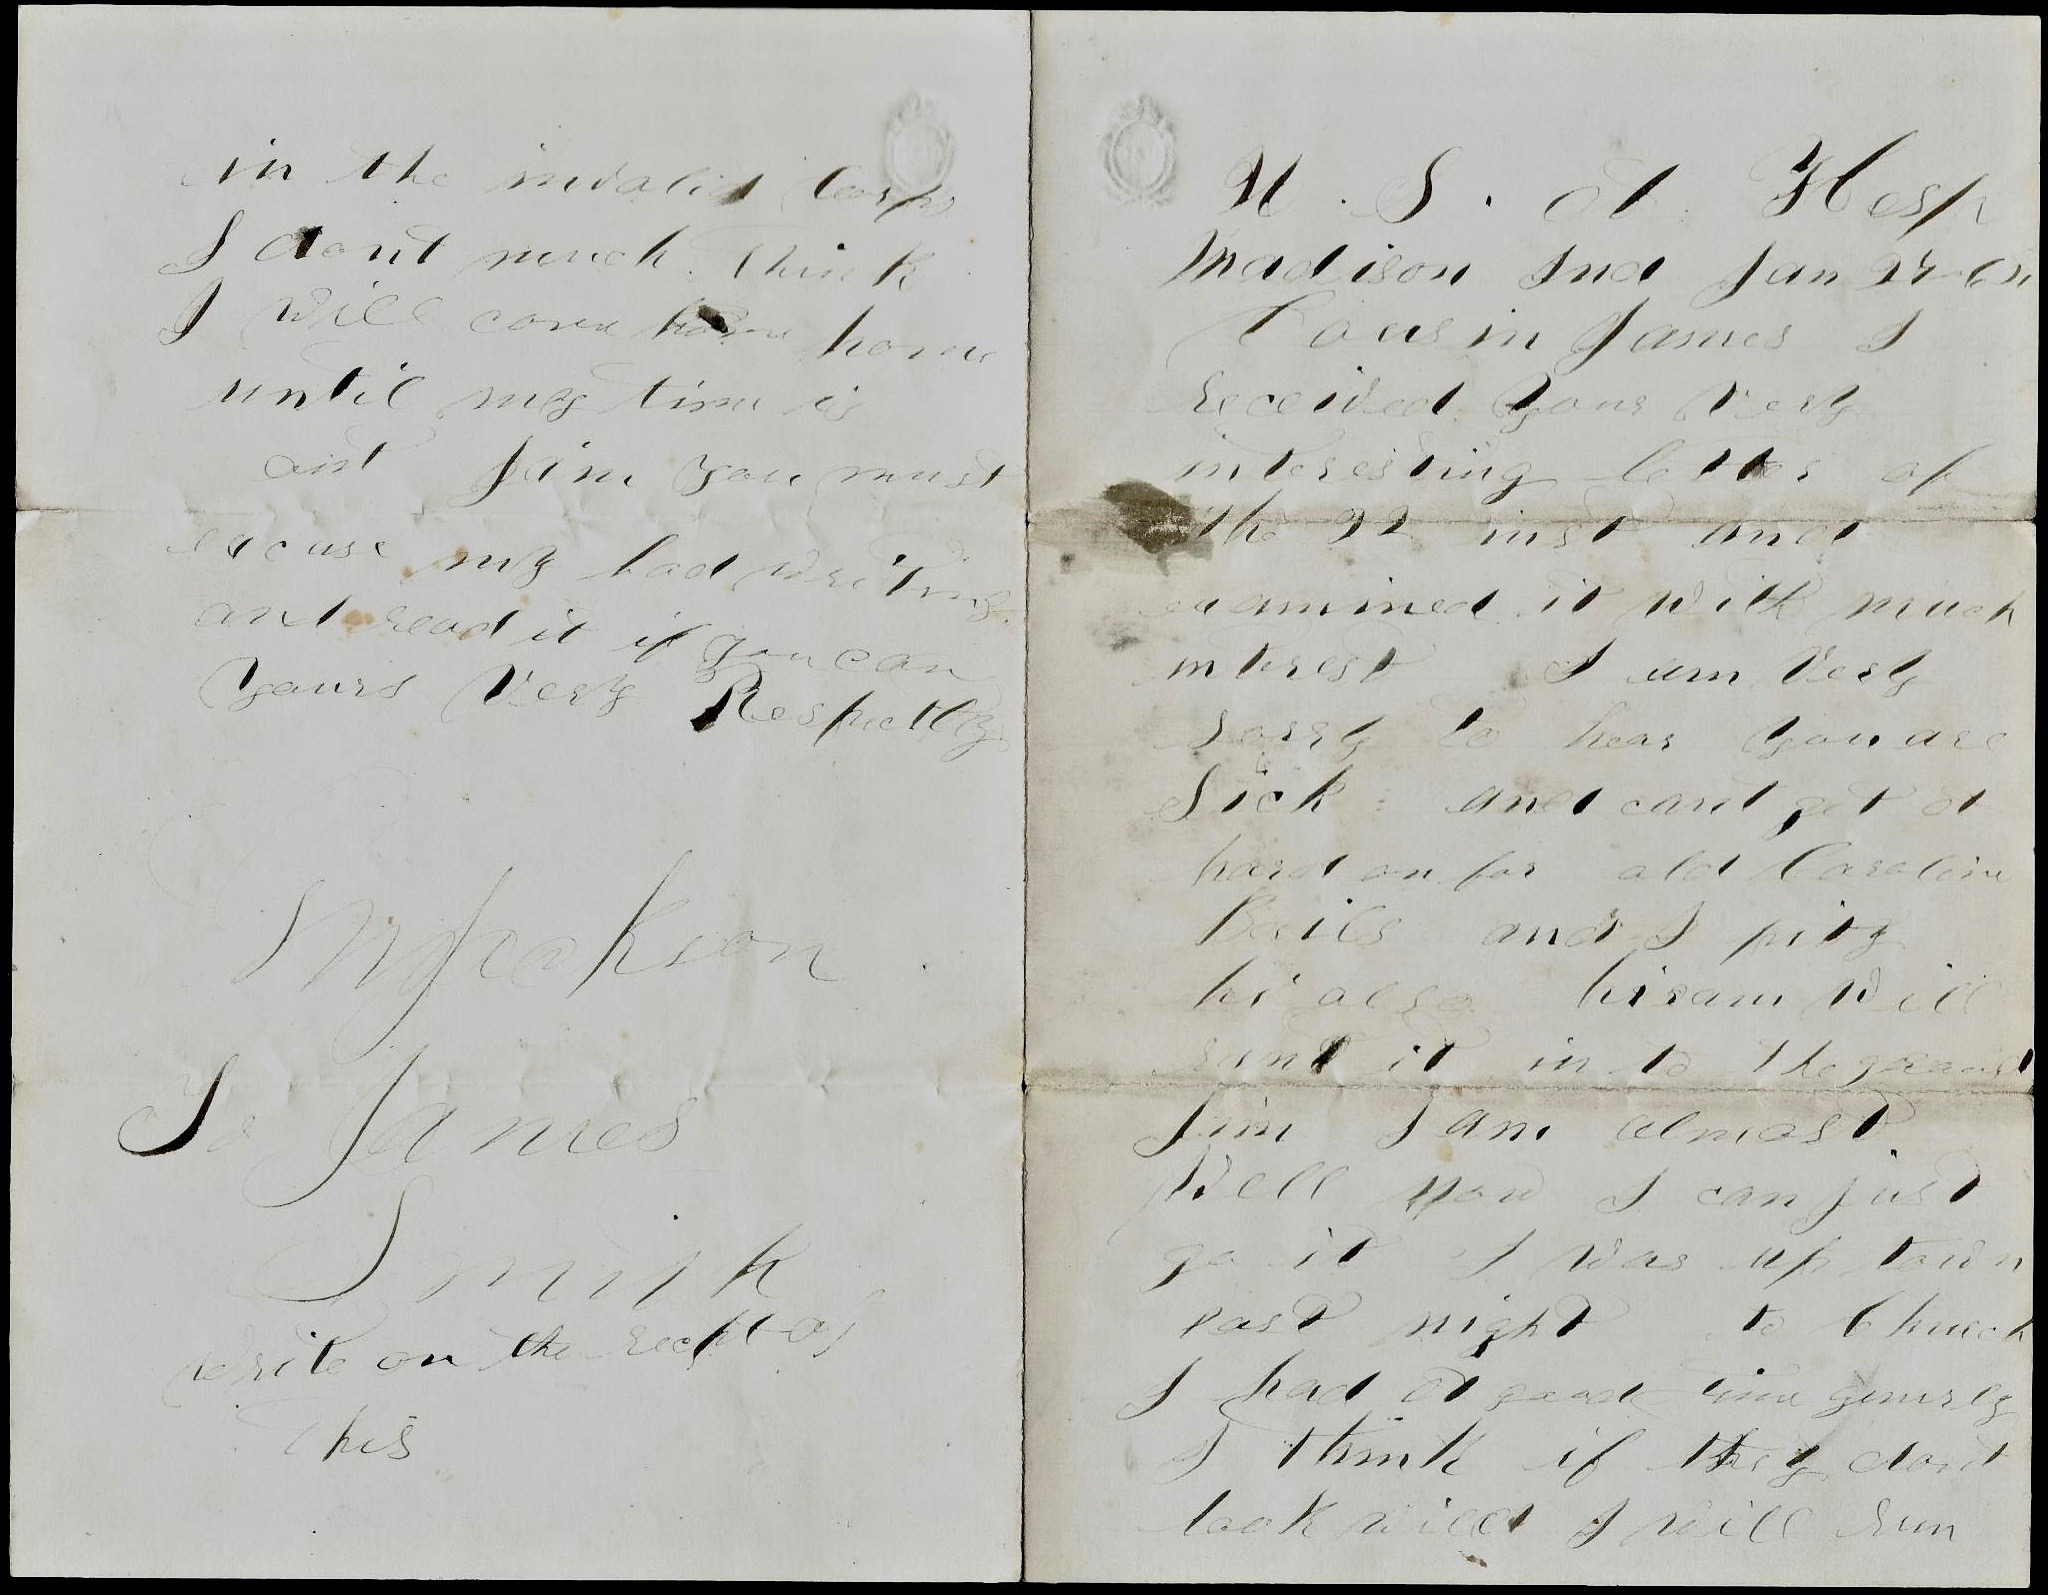 U. S. A. Hosp
Madison Ind Jan 24
Cousin James I
received your very
interesting letter of
the 22 inst and
examined it with much
interest I am very
sorry to hear you are
Sick and cant get a
hard on for old Caroline
Bails and I pity
hir also hiram will
it in to the
Jim I am almost
Well now I can just
go it I was up town
last night to Church
I had a good time
I think if they dont
look I will run
in the invalid Corps
I dont much think
I will come home home
until my time is
out Jim you must
excuse my bad writing
and read it if you can
Yours Very Respectly
Jackson
To James
Smith
write on the recpt of
this